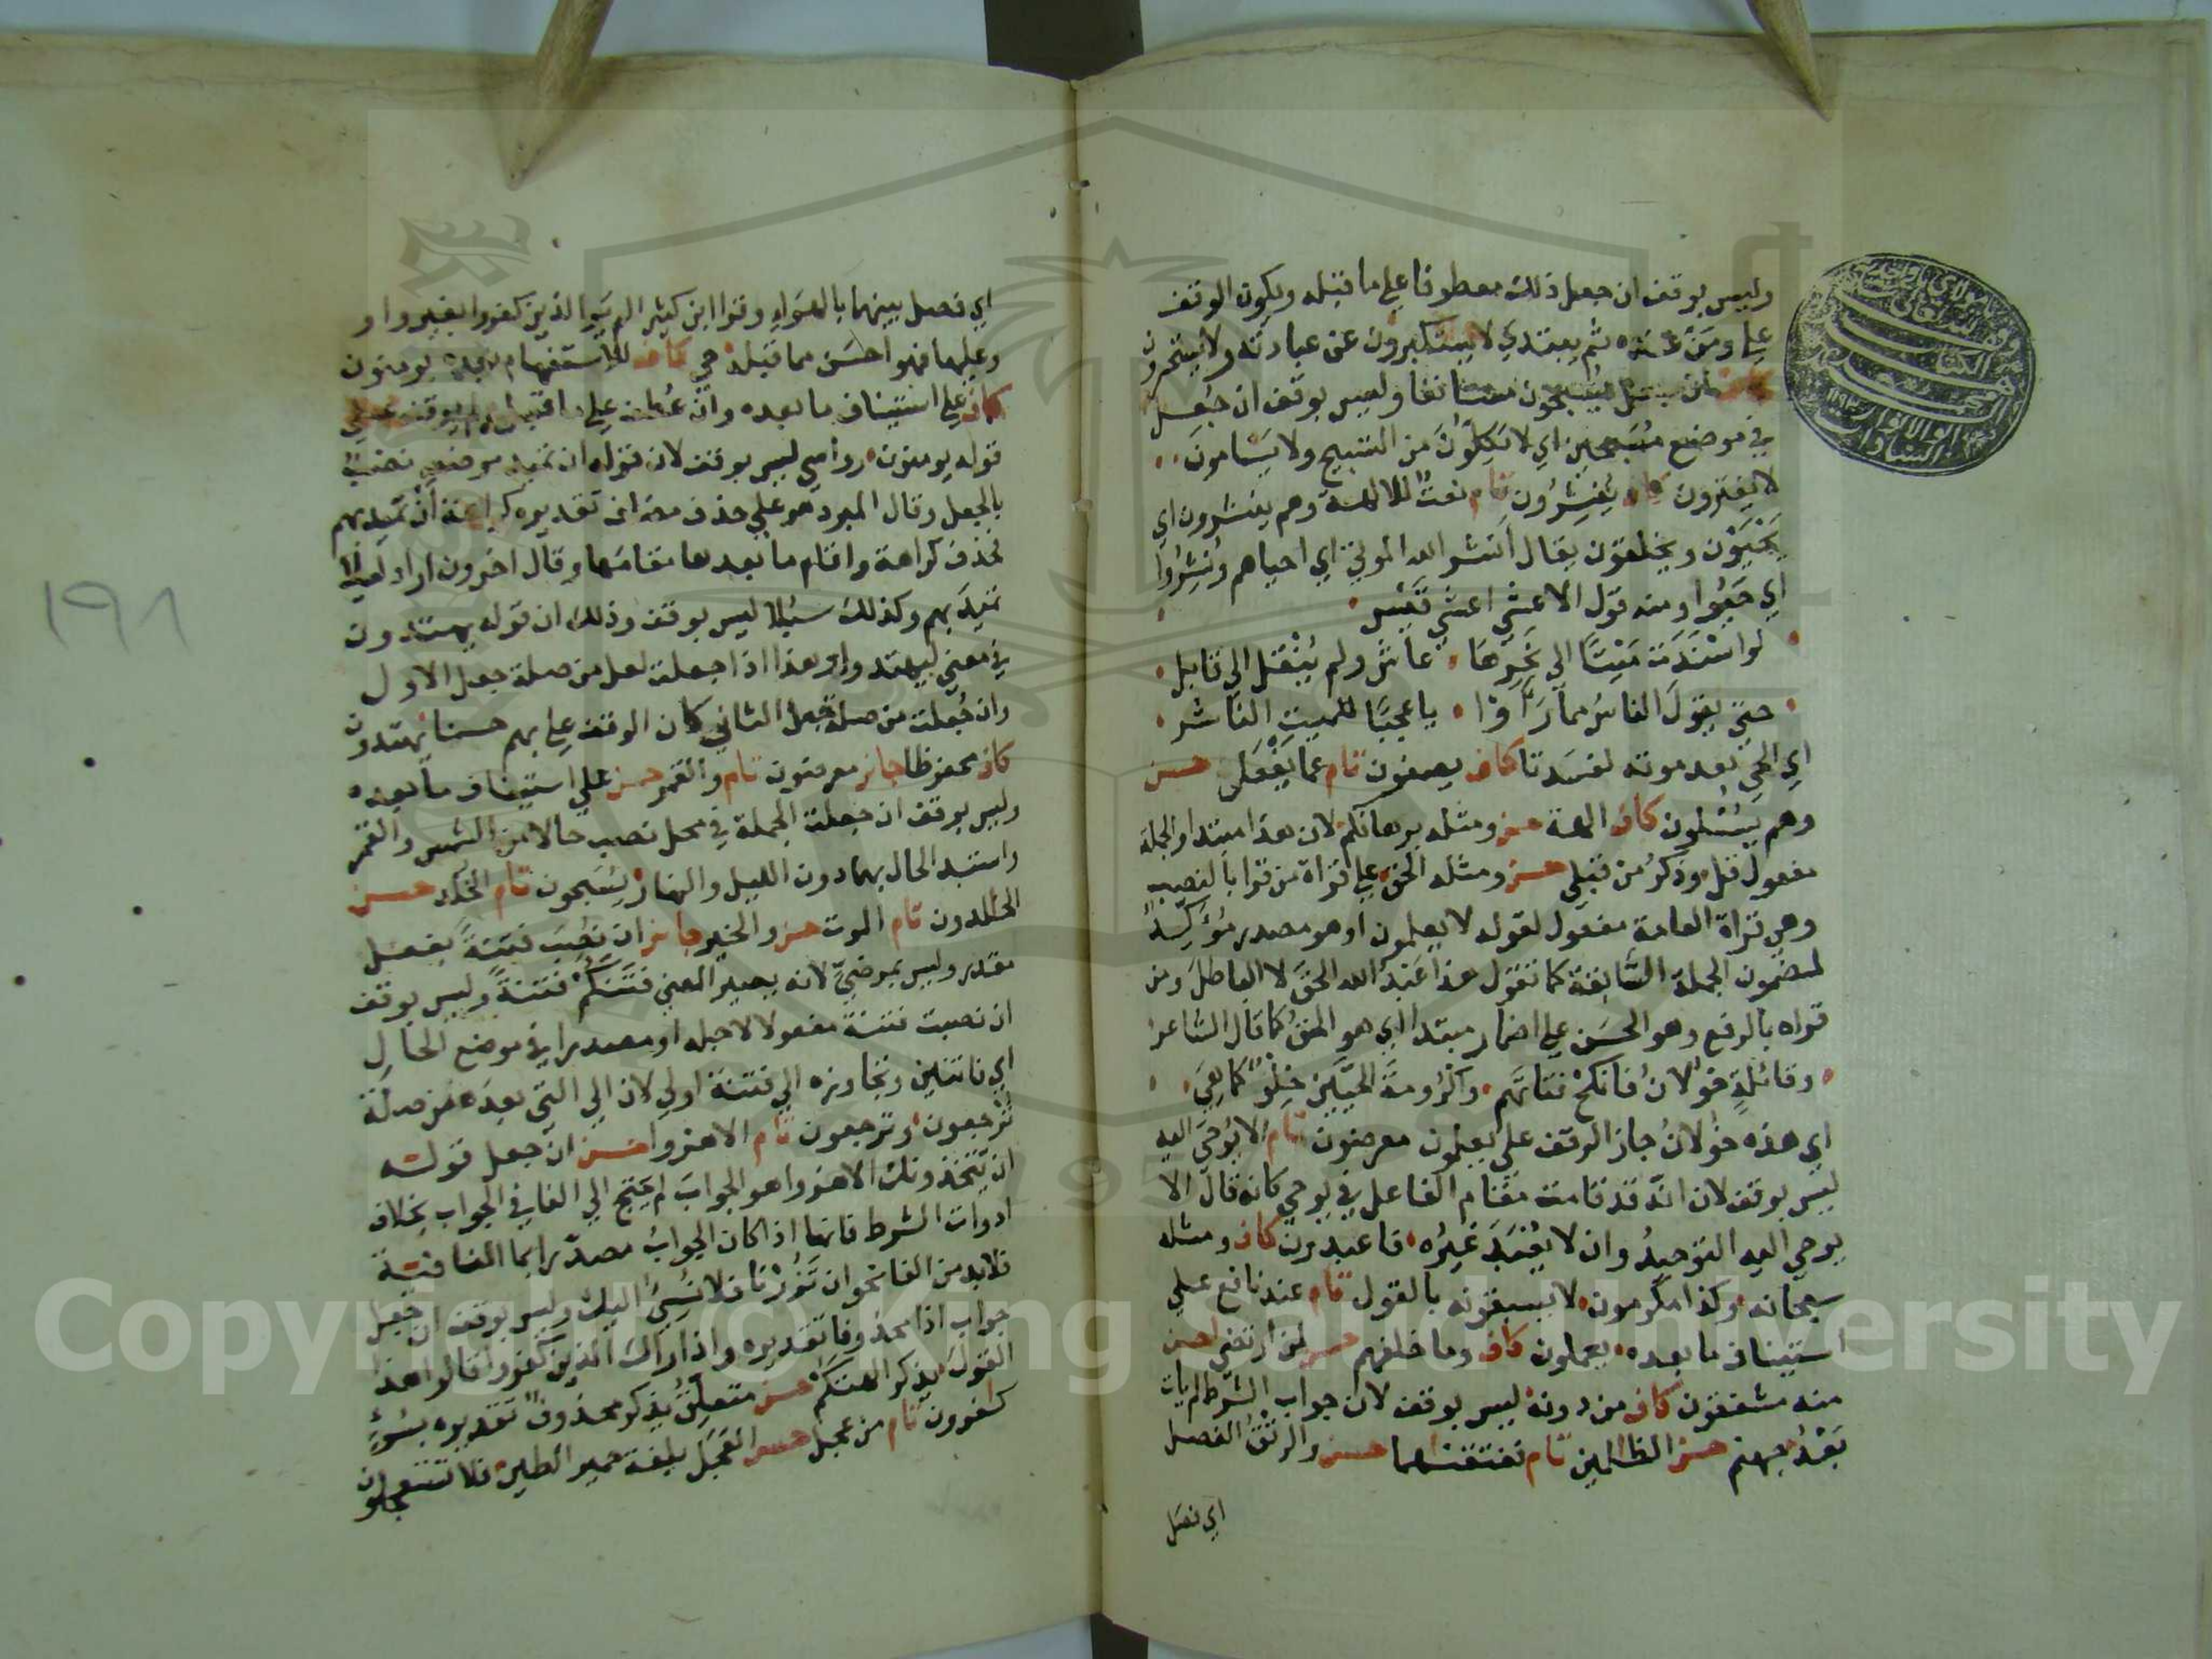 وليس بوقف ان جعل ذلك معطوفا علي ما قبله ويكون الوقف
علي ومن عنده ثم يبتدي لا يستكبرون عن عبادته ولا يستحسرون
يسبحون مستانفا وليس بوقف ان جعل
في موضع مسبحين اي لا يَكِلّونَ من التسبيح ولا يَسْامون
لا يفترون كاف يُنشِرُون تام نعت للالهة وهم ينشرون اي
يُحْيَوْن ويخلقون يقال أنشر الله الموتي اي احياهم ونُشِرُوا
اي حَيُوا ومنه قول الاعشي اعشي قَيْس
لو اسْنَدَت مَيْتًا الي نَحْرِهَا عاش ولم يُنْقل الي قابل
حتي يقولَ الناسُ مما رَأَوْا يا عجبًا للميت الناشر
اي الحي بعد موته لفسدتا كاف يصفون تام عما يَفْعَل حسن
وهم يسئلون كاف الهة حسن ومثله برهانكم لان هذا مبتدا والجملة
مفعول قل وذكر من قبلي حسن ومثله الحق علي قراة من قرا بالنصب
وهي قراة العامة مفعول لقوله لا يعلمون او هو مصدر مؤكد
لمضمون الجملة السابقة كما تقول هذا عَبْدُ الله الحقَّ لا الباطلَ ومن
قراه بالرفع وهو الحَسَن علي اضمار مبتدا اي هو الحقُ كما قال الشاعر
وقائلةٍ خولانُ فانكحْ فتاتَهم واكْرُومةُ الحيَّين خِلْوٌ كما هِيَ
اي هذه خولانُ جاز الوقف علي يعلمون معرضون تام الا يُوحَي اليه
ليس بوقف لان انّه قد قامت مقام الفاعل في يوحي كانه قال الا
يوحي اليه التوحيدُ وان لا يُعْبَدَ غيرُه فاعبدون كاف ومثله
سبحانه وكذا مكرمون لا يسبقونه بالقول تام عند نافع علي
استيناف ما بعده يعملون كاف وما خلفهم حسن لمن ارتضي احسن
منه مشفقون كاف من دونه ليس بوقف لان جواب الشرط لم يات
بَعْدُ جهنم حسن الظالمين تام ففتقنهما حسن والرتْقُ الفصل
اي فصَل
اي فصل بينهما بالهواء وقرا ابن كثير الم يَرَوا الذين كفروا بغير واو
وعليها فهو احسَن مما قبله حي كاف للاستفهام بعده يومنون
كاف علي استيناف ما بعده وان عُطف علي ما قبله لم يوقف علي
قوله يومنون رواسي ليس بوقف لان قوله ان تميد موضعه نصب
بالجعل وقال المبرد هو علي حذف مضاف تقديره كراهة ان تميد بهم
فحذف كراهة واقام ما بعدها مقامَها وقال اخرون اراد لئلا
تميدَ بهم وكذلك سبُلا ليس بوقف وذلك ان قوله يهتدون
في معني ليهتدوا وهذا اذا جعلت لعل من صلة جعل الاول
وان جُعلت من صلة جعل الثاني كان الوقف علي بهم حسنا يهتدون
كاف محفوظا جائز معرضون تام والقمر حسن علي استيناف ما بعده
وليس بوقف ان جعلت الجملة في محل نصب حالا من الشمس والقمر
واستبد الحال بهما دون الليل والنهار يسْبحون تام الخلد حسن
الخلدون تام الموت حسن والخير جائز ان نُصِبَ فتنةً بفعل
مقدر وليس بمرضيٍّ لانه يصير المعني فتنّكم فتنةً وليس بوقف
ان نصبت فتنةً مفعولا لاجله او مصدرا في موضع الحال
اي فاتنين وتجاوزه الي فتنة اولي لان الي التي بعدَه من صلة
تُرْجعون وترجعون تام الا هزوا حسن ان جعل قولـه
ان يتخذونك الا هزوا هو الجوابَ لم يَحْتج الي الفا في الجواب بخلاف
ادوات الشرط فانها اذا كان الجوابُ مصدّرا بما النافية
فلابد من الفا نحو ان تَزُرْنا فلا نُسِيُ اليك وليس بوقف ان جُعل
جواب اذا محذوفا تقديره واذا راك الذين كفروا قالوا هذا
القولَ يذكر الهتكم حسن متعلِّقُ يذكر محذوفٌ تقديره بسُوءٍ
كفرون تام من عجل حسن العَجَل بلغة حمير الطين فلا تستعجلون
١٩٨